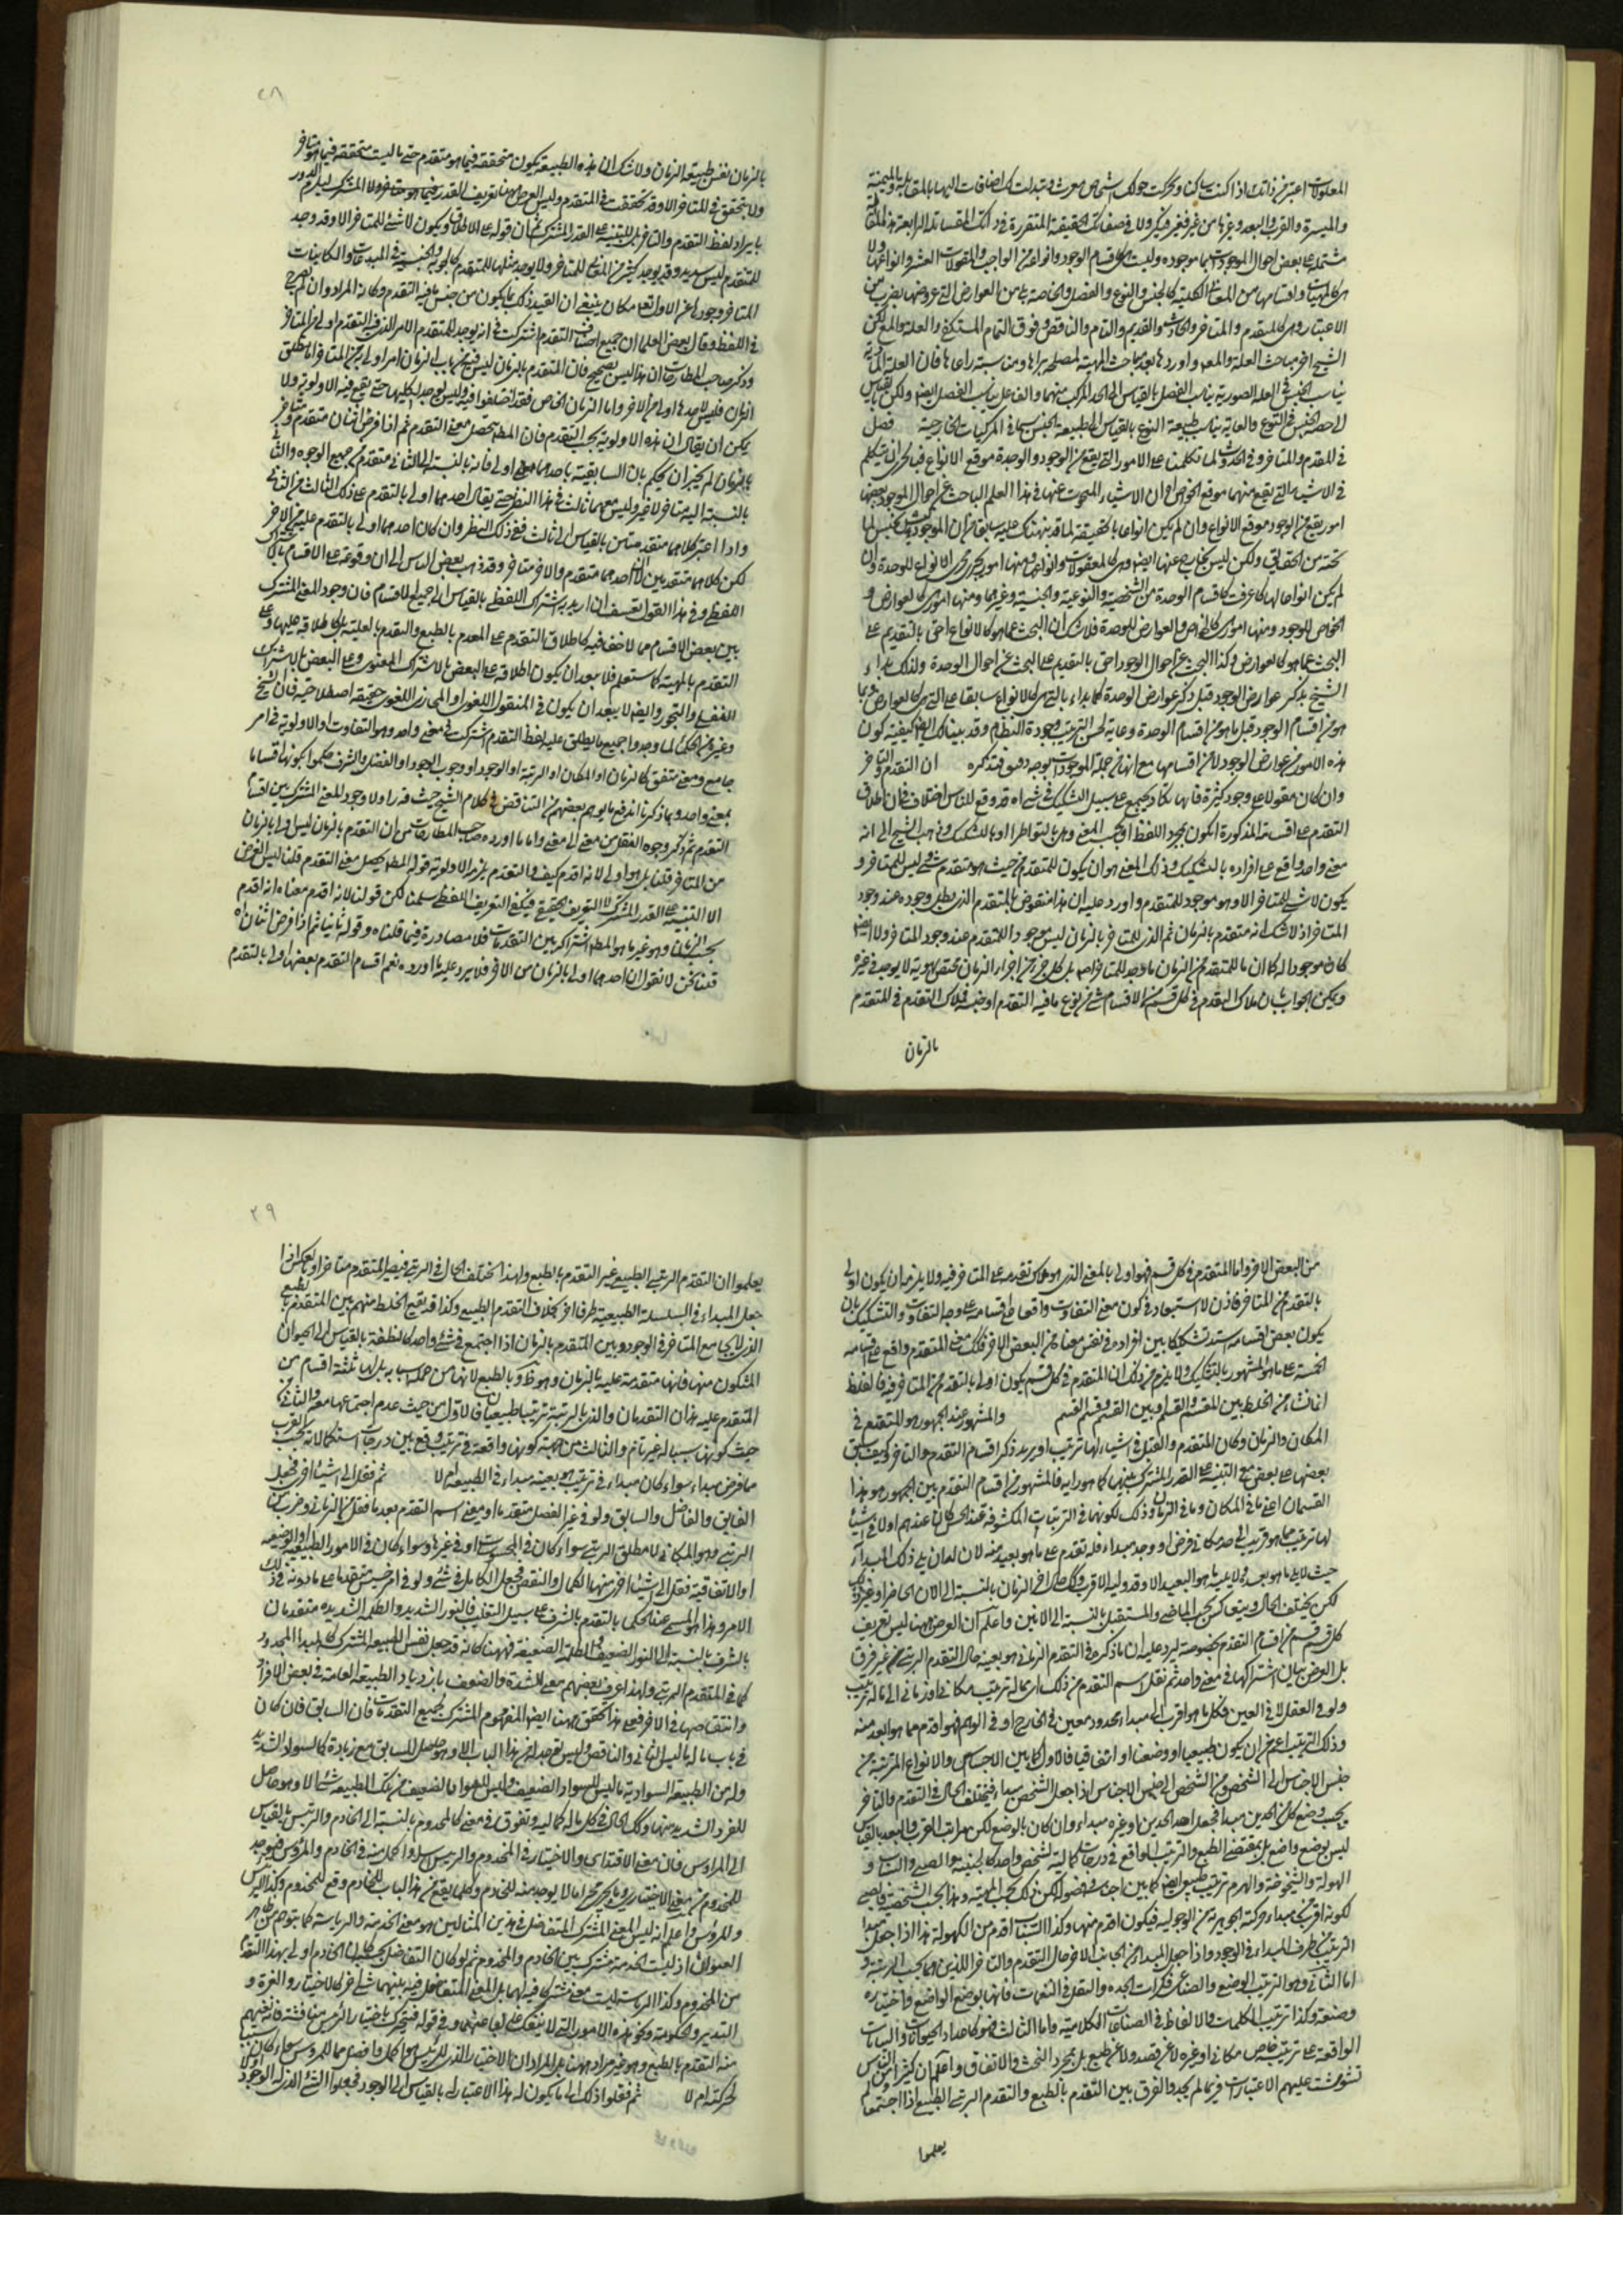 المعلولات اعتبر من ذاتك اذا كنت ساكنا وتحركت حولك اشخاص
والميسرة والقرب والبعد وغيرها من غير تغير في صفاتك الحقيقية المتقررة في ذاتك
مشتملة على بعض احوال الموجودات بما هي موجودة وليست من اقسام الوجود وانواعه من الواجب والمقولات العشر وانواعها ولا
من المعاني الكلية كالجنس والنوع والفصل والخاصة بل من العوارض التي
الاعتبارية وهي كالمتقدم والمتاخر والحادث والقديم والتام والناقص وفوق التمام المستكفي والعلة والمعلول لكن
الشيخ اخر مباحث العلة والمعلول واوردها بعد مباحث المهية لمصلحة يراها ومناسبة راعاها فان العلة المادية
يناسب الجنس والعلة الصورية يناسب الفصل بالقياس الى الحد المركب منهما والفاعل يناسب الفصل ايضا ولكن بالقياس
الى حصة الجنس في النوع والغاية يناسب طبيعة النوع بالقياس الى طبيعة الجنس سيما في المركبات الخارجية فصل
في المتقدم والمتاخر وفي الحدوث لما تكلمنا على الامور التي يقع من الوجود والوحدة موقع الانواع فبالحري ان نتكلم
في الاشياء التي يقع منهما موقع الخواص ان الاشياء المبحوث عنها في هذا العلم الباحث عن احوال الموجود بعضها
امور يقع من الوجود موقع الانواع وان لم يكن انواعا بالحقيقة لما قد نبهناك عليه سابقا من ان الموجود ليس بجنس لما
تحته من الحقايق ولكن ليس بخارج عنها ايضا وهي كالمقولات وانواعها ومنها امور يجري مجرى الانواع للوحدة وان
لم يكن انواعا لها كما عرفت كاقسام الوحدة من الشخصية والنوعية والجنسية وغيرها ومنها امور هي كالعوارض و
الخواص للوجود ومنها امور هي كالخواص والعوارض للوحدة فلا شك ان البحث عما هو كالانواع احق بالتقديم على
البحث عما هو كالعوارض وكذا البحث عن احوال الوجود احق بالتقديم على البحث عن احوال الوحدة ولذلك بدا
الشيخ بذكر عوارض الوجود قبل ذكر عوارض الوحدة كما بدا بالتي هي كالانواع سابقا على التي هي كالعوارض وبما
هو من اقسام الوجود قبل ما هو من اقسام الوحدة رعاية لحسن الترتيب وجودة النظام وقد بيناك ايضا كيفية كون
هذه الامور من عوارض الوجود لا من اقسامها مع انها من جملة الموجودات بوجه دقيق فتذكره ان التقدم والتاخر
وان كان مقولا على وجوه كثيرة فانها يكاد يجتمع على سبيل التشكيك في شيء اه قد وقع للناس اختلاف في ان اطلاق
التقدم على اقسامه المذكورة ايكون بمجرد اللفظ او بحسب المعنى وهل بالتواطؤ او بالتشكيك وذهب الشيخ الى انه
معنى واحد واقع على افراده بالتشكيك وذلك المعنى هو ان يكون للمتقدم من حيث هو متقدم شيء ليس للمتاخر و
يكون لا شيء للمتاخر الا وهو موجود للمتقدم واورد عليه ان هذا منقوض بالمتقدم الذي بطل وجوده عند وجود
المتاخر اذ لا شك انه متقدم بالزمان ثم الذي للمتاخر بالزمان ليس موجودا للمتقدم عند وجود المتاخر ولا ايضا
كان موجودا له كما ان ما للمتقدم من الزمان ما وجد للمتاخر اصلا بل كل جزء من اجزاء الزمان مختص بهوية لا يوجد في غيره
ويمكن الجواب بان ملاك التقدم في كل قسم من الاقسام شيء من نوع ما فيه التقدم او جنسه فملاك التقدم في المتقدم
بالزمان
٢٨
بالزمان نفس طبيعة الزمان ولا شك ان هذه الطبيعة يكون متحققة فيما هو متقدم حين ما ليست متحققة فيما هو متاخر
ولا يتحقق في المتاخر الا وقد تحققت في المتقدم وليس الغرض هنا تعريف القدر المشترك ليلزم الدور
بايراد لفظ التقدم والتاخر بل التنبيه على القدر المشترك ثم ان قوله على الاطلاق ويكون لا شيء للمتاخر الا وقد وجد
للمتقدم ليس بسديد وقد يوجد كثير من المعاني للمتاخر ولا يوجد مثلها للمتقدم
المتاخر وجودها عن الاول فكان ينبغي ان يقيد ذلك بما يكون من جنس ما فيه التقدم وكانه المراد وان لم يصرح
في اللفظ وقال بعض العلماء ان جميع اصناف التقدم اشترك في انه يوجد للمتقدم الامر الذي فيه التقدم اولى من المتاخر
وذكر صاحب المطارحات ان هذا ليس بصحيح فان المتقدم بالزمان ليس من باب الزمان امر اولى به من المتاخر اما مطلق
الزمان فليس لاحدهما اولى من الاخر واما الزمان الخاص فقد اختلفوا فيه وليس يوجد لكليهما حتى يقع فيه الاولوية ولا
يمكن ان يقال ان هذه الاولوية بحسب التقدم فان المطلوب تحصيل معنى التقدم ثم اذا فرض اثنان متقدم ومتاخر
بالزمان لم يجز ان يحكم بان السابقية باحدهما اولى فانه بالنسبة الى الثاني متقدم من جميع الوجوه والثاني
بالنسبة اليه متاخر لا غير وليس معهما ثالث في هذا النظر حتى يقال احدهما اولى بالتقدم على ذلك الثالث من الثاني
واذا اعتبر كلاهما متقدمين بالقياس الى ثالث ففي ذلك النظر وان كان احدهما اولى بالتقدم عليه من الاخر
لكن كلاهما متقدمين لا ان احدهما متقدم والاخر متاخر وقد ذهب بعض الناس الى ان وقوعه على الاقسام باشتراك
اللفظ وفي هذا القول تعسف ان اريد به اشتراك اللفظ بالقياس الى جميع الاقسام فان وجود المعنى المشترك
بين بعض الاقسام مما لا خفاء فيه كاطلاق التقدم على المتقدم بالطبع والتقدم بالعلية بل كاطلاقه عليهما وعلى
التقدم بالمهية كما ستعلم فلا يبعد ان يكون اطلاقه على البعض بالاشتراك المعنوي وعلى البعض بالاشتراك
اللفظي والتجوز وايضا لا يبعد ان يكون في المنقول اللغوي او المجاز اللغوي حقيقة اصطلاحية فان الشيخ
وغيره من الحكماء لما وجدوا جميع ما يطلق عليه لفظ التقدم اشترك في معنى واحد وهو التفاوت او الاولوية في امر
جامع ومعنى متفق كالزمان او المكان او الرتبة او الوجود او وجوب الوجود او الفضل والشرف حكموا بكونها اقساما
بمعنى واحد وبما ذكرنا اندفع ما يوهم بعضهم من التناقض في كلام الشيخ حيث قرر اولا وجود المعنى المشترك بين اقسام
التقدم ثم ذكر وجوه النقل من معنى الى معنى واما ما اورده صاحب المطارحات من ان التقدم بالزمان ليس اولى بالزمان
من المتاخر قلنا بل هو اولى لانه اقدم كيف والتقدم يلزمه الاولوية قوله المطلوب تحصيل معنى التقدم قلنا ليس الغرض
الا التنبيه على القدر المشترك لا التعريف الحقيقي فيكفي التعريف اللفظي سلمنا لكن قولنا لانه اقدم معناه انه اقدم
بحسب الزمان وهو غير ما هو المطلوب اشتراكه بين التقدمات فلا مصادرة فيما قلناه وقوله ثانيا ثم اذا فرض اثنان اه
قلنا نحن لا نقول ان احدهما اولى بالزمان من الاخر فلا يرد علينا ما اورده نعم اقسام التقدم بعضها اولى بالتقدم
من البعض الاخر واما المتقدم في كل قسم فهو اولى بالمعنى الذي هو ملاك تقدمه على المتاخر فيه ولا يلزم ان يكون اولى
بالتقدم من المتاخر فاذن لا استبعاد في كون معنى التفاوت واقعا على اقسامه على وجه التفاوت والتشكيك بان
يكون بعض اقسامه اشد تشكيكا بين افراده في نفس معناه من البعض الاخر فكذلك معنى المتقدم واقع على اقسامه
الخمسة على ما هو المشهور بالتشكيك ولا يلزم من ذلك ان المتقدم في كل قسم يكون اولى بالتقدم من المتاخر فيه فالغلط
انما نشا من الخلط بين المقسم والقسم وبين القسم وقسم القسم والمشهور عند الجمهور هو المتقدم في
المكان والزمان وكان المتقدم والقبل في اشياء لها ترتيب اه يريد ذكر اقسام التقدم والتاخر وكيف سبق
بعضها على بعض مع التنبيه على القدر المشترك بينها كما هو رايه فالمشهور من اقسام التقدم بين الجمهور هو هذا
القسمان اعني ما في المكان وما في الزمان وذلك لكونهما في الترتيبات المكشوفة عند الحس كان عندهم اولا في اشياء
لها ترتيب فما هو قريب الى حد مكاني فرض او وجد مبداء فله تقدم على ما هو بعيد منه لان له ان يلي ذلك المبداء
حيث لا يلي ما هو بعد ولا يليه هو البعيد الا وقد وليه الاقرب وكذلك الحال في الزمان بالنسبة الى الان الحاضر او غيره
لكن يختلف الحال وينعكس بحسب الماضي والمستقبل بالنسبة الى الانين واعلم ان الغرض ههنا ليس تعريف
كل قسم قسم من اقسام التقدم بخصوصه ليرد عليه ان ما ذكره في التقدم الزماني هو بعينه حال التقدم الرتبي من غير فرق
بل الغرض بيان اشتراكها في معنى واحد ثم نقل اسم التقدم من ذلك اي مما له ترتيب مكاني او زماني الى ما له ترتيب
ولو في العقل لا في العين فكل ما هو اقرب الى مبداء محدود معين في الخارج او في الوهم فهو اقدم مما هو ابعد منه
وذلك الترتيب اعم من ان يكون طبيعيا او وضعيا او اتفاقيا فالاول كما بين الاجناس والانواع المترتبة من
جنس الاجناس الى الشخص ومن الشخص الى جنس الاجناس اذا جعل الشخص مبداء فيختلف الحال في التقدم والتاخر
بحسب وضع كل من الحدين مبداء فجعل احد الحدين او غيره مبداء وان كان بالوضع لكن مراتب القرب والبعد بالقياس
ليس بوضع واضع بل بمقتضى الطبع والترتيب الواقع في درجات كمالية لشخص واحد كالجنينية والصبى والشباب و
الكهولة والشيخوخة والهرم ترتيب طبيعي ايضا كما بين اجناس وفصول لكن ذلك بحسب المهية وهذا بحسب الشخصية فالصبى
لكونه اقرب من مبداء حركته الجوهرية من الوجود اليه فيكون اقدم منها وكذا الشباب اقدم من الكهولة هذا اذا جعل مبداء
الترتيب من طرف المبداء في الوجود واذا جعل المبداء من الجانب الاخر حال التقدم والتاخر اللذين هما بحسب الرتبة و
اما الثاني وهو الترتيب الوضعي والصناعي فكمرات الحدة والثقل في النغمات فانها بوضع الواضع واختياره
وصنعه وكذا ترتيب الكلمات والالفاظ في الصناعات الكلامية واما الثالث فهو كاعداد الحيوانات والنباتات
الواقعة على ترتيب خاص مكاني او غيره لا عن قصد ولا عن طبع بل بمجرد البخت والاتفاق واعلم ان كثيرا من الناس
تشوشت عليهم الاعتبارات فربما لم يجدوا الفرق بين التقدم بالطبع والتقدم الرتبي الطبيعي اذا اجتمعا ولم
يعلموا
٢٩
يعلموا ان التقدم الرتبي الطبيعي غير التقدم بالطبع ولهذا يختلف الحال في الرتبي فيصير المتقدم متاخرا وبالعكس اذا
جعل المبداء في السلسلة الطبيعية طرفا اخر بخلاف التقدم الطبيعي وكذا قد يقع الخلط منهم بين المتقدم بالطبع
الذي لا يجامع المتاخر في الوجود وبين المتقدم بالزمان اذا اجتمع في شيء واحد كالنطفة بالقياس الى الحيوان
المتكون منها فانها متقدمة عليه بالزمان وهو ظاهر وبالطبع لانها من جملة اسبابه بل لها ثلثة اقسام من
المتقدم عليه هذان التقدمان والذي بالرتبة ترتيبا طبيعيا فالاول من حيث عدم اجتماعها معه والثاني من
حيث كونها سببا له غير تام والثالث من جهة كونها واقعة في ترتيب وقع بين درجات استكمالاته بحسب القرب
مما فرض مبداء سواء كان مبداء في ترتيب هو بعينه مبداء في الطبيعة ام لا ثم نقل الى اشياء اخر فجعل
الفايق والفاضل والسابق ولو في غير الفضل متقدما اه ومعنى اسم التقدم بعد ما نقل من الزماني وضرب من
الرتبي وهو المكاني لا مطلق الرتبي سواء كان في المحسوسات او في غيرها وسواء كان في الامور الطبيعية او الوضعية
او الاتفاقية نقل الى اشياء اخر منها الكمال والنقص فجعل الكامل في شيء ولو في امر خسيس متقدما على ما دونه في ذلك
الامر وهذا هو المسمى عند الحكماء بالتقدم بالشرف على سبيل التغليب فالنور الشديد والظلمة الشديدة متقدمان
بالشرف بالنسبة الى النور الضعيف والظلمة الضعيفة فههنا كانه قد جعل نفس الطبيعة المشتركة كالمبداء المحدود
كما في المتقدم الرتبي ولهذا عرف بعضهم معنى الشدة والضعف بازدياد الطبيعة العامة في بعض الافراد
وانتقاصها في الاخر فعلى هذا تحقق ههنا ايضا المفهوم المشترك لجميع التقدمات فان السابق فان كان
في باب ما له ما ليس للثاني والناقص وليس يوجد له من هذا الباب الا وهو حاصل للسابق مع زيادة كالسواد الشديد
وله من الطبيعة السوادية ما ليس للسواد الضعيف وليس للسواد الضعيف من تلك الطبيعة شيء الا وهو حاصل
للفرد الشديد منها وكذلك الحال في كل ما له كمالية وتفوق في معنى كالمخدوم بالنسبة الى الخادم والرئيس بالقياس
الى المرؤس فان معنى الاقتداء والاختيار في المخدوم والرئيس اسد واكمل منه في الخادم والمرؤس فيوجد
للمخدوم من معنى الاختيار وما يجري مجراه ما لا يوجد منه للخادم وكلما يقع من هذا الباب للخادم وقع للمخدوم وكذا الرئيس
وللمرؤس واعلم انه ليس المعنى المشترك المتفاضل في هذين المثالين هو معنى الخدمة والرياسة كما يتوهم من ظاهر
العنوان اذ ليست الخدمة مشتركة بين الخادم والمخدوم ثم لو كان التفاضل بحسبها كان الخادم اولى بهذا التقدم
من المخدوم وكذا الرياسة ليست معنى مشتركا فيه لهما بل المعنى المتفاضل فيه بينهما شيء اخر كالاختيار والعزة و
التدبير والحكومة ونحو هذه الامور التي لا ينفك عنهما وفي قوله فيتحرك باختيار الرئيس مناقشة فانه يفهم
منه التقدم بالطبع وهو غير مراد ههنا بل المراد ان الاختيار الذي للرئيس هو اكمل وافضل مما للمرؤس سواء كان سببا
لحركته ام لا ثم نقلوا ذلك الى ما يكون له هذا الاعتبار بالقياس الى الوجود فجعلوا الشيء الذي له الوجود اولا